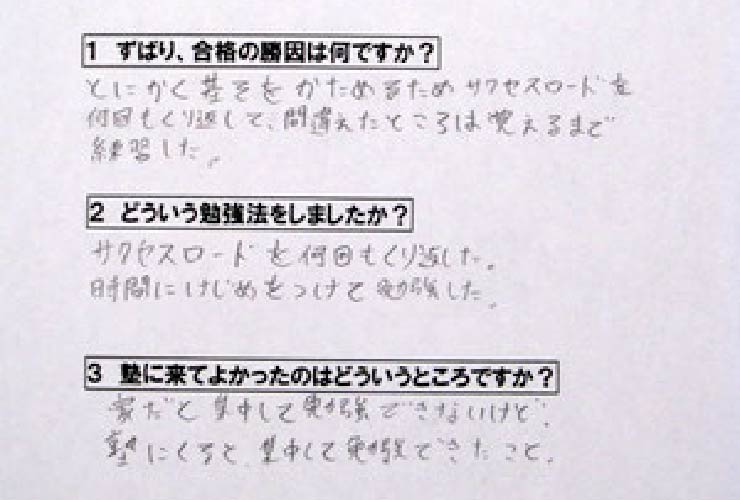 1 ずばり、合格の勝因は何ですか？
とにかく基そをかためるためサクセスロードを
何回もくり返して、間違えたところは覚えるまで
練習した。
2 どういう勉強法をしましたか？
サクセスロードを何回もくり返した。
時間にけじめをつけて勉強した。
3 塾に来てよかったのはどういうところですか？
家だと集中して勉強できないけど、
塾にくると、集中して勉強できたこと。